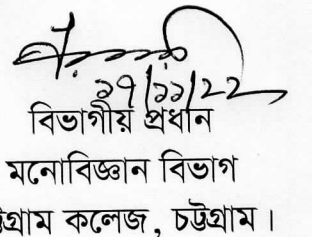 ২৭/১১/22
বিভাগীয় প্রধান
মনোবিজ্ঞান বিভাগ
গ্রাম কলেজ, চট্টগ্রাম।